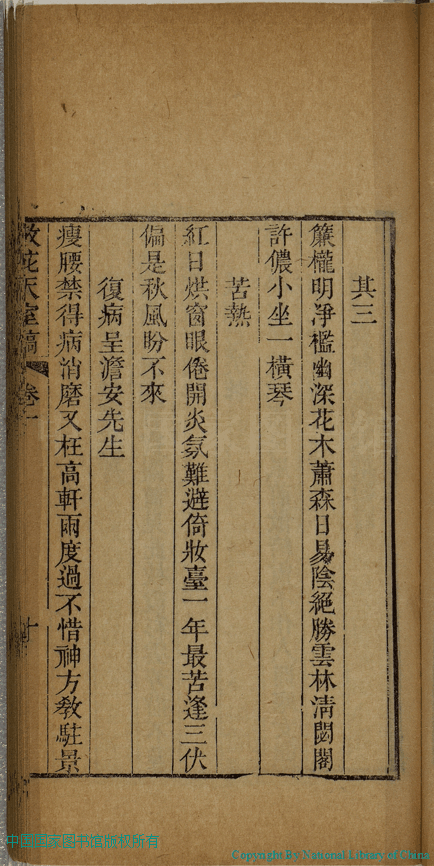 其三
簾櫳明淨檻幽深花木蕭森日易陰絕勝雲林清閟閣
許儂小坐一橫琴
苦熱
紅日烘窗眼倦開炎氛難避倚妝臺一年最苦逢三伏
偏是秋風盼不來
復病呈澹安先生
瘦腰禁得病消磨又枉高軒兩度過不惜神方教駐景
花天室稿 卷一
中国国家图书馆版权所有
Copyright By National Library of China